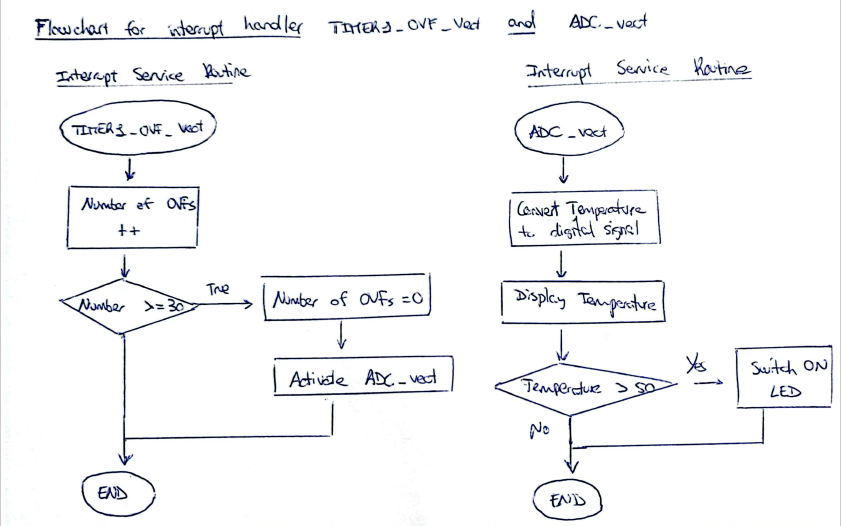 Flowchart for interrupt handler TIMER1_OVF_Vect and ADC_vect
Interrupt Service Routine
TIMER1_OVF_Vect
Number of OVFs
++
Number >=30
True
Number of OVFs =0
Activate ADC_vect
END
Interrupt Service Routine
ADC_vect
Convert Temperature
to digital signal
Display Temperature
Temperature > 50
Yes
Switch ON
LED
No
END